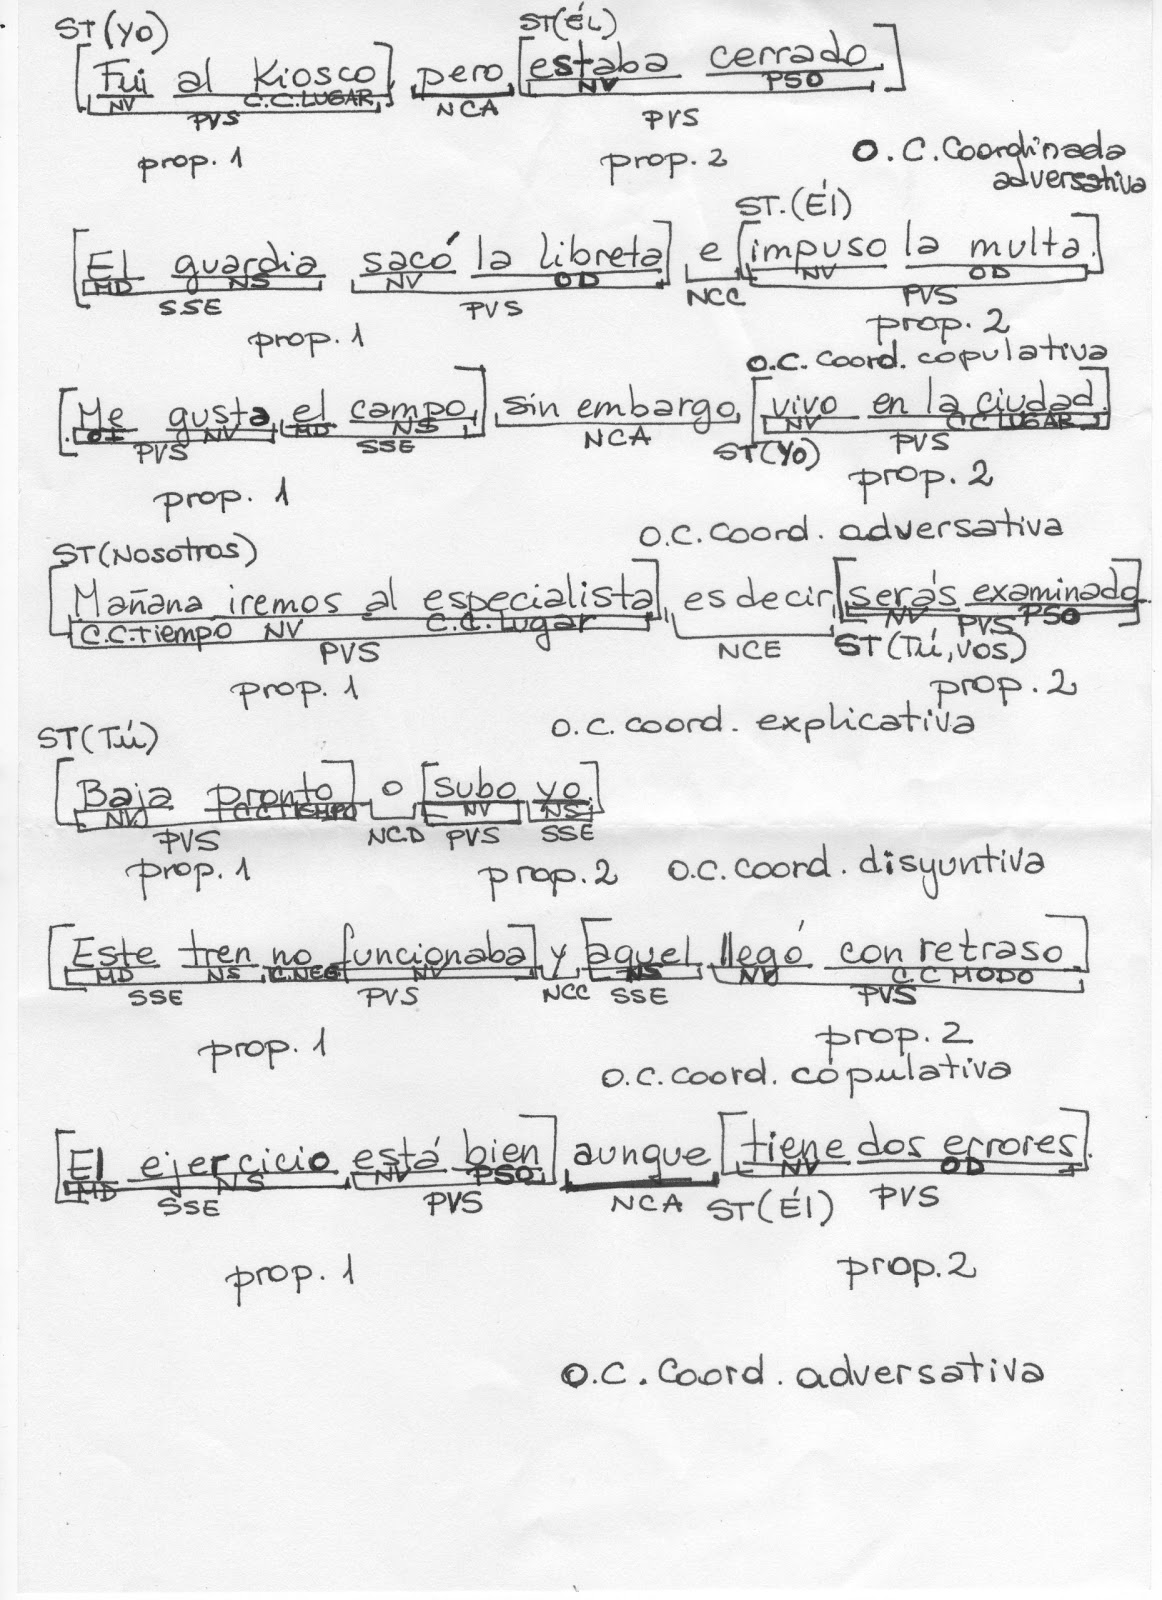 ST(YO) ST(ÉL)
[Fui al Kiosco] pero [estaba cerrado]
NV C.C.LUGAR NCA NV PSO
PVS PVS
prop. 1 prop. 2 O.C.Coordinada
adversativa
ST.(Él)
[El guardia sacó la libreta] e [impuso la multa.]
MD NS NV OD NCC NV OD
SSE PVS PVS
prop. 1 prop. 2
O.C. coord. copulativa
[Me gusta el campo] sin embargo [vivo en la ciudad]
OI NV MD NS NCA NV C.C LUGAR
PVS SSE ST(YO) PVS
prop. 1 prop. 2
ST(Nosotros) O.C. coord. adversativa
[Mañana iremos al especialista] es decir [serás examinado.]
C.C.tiempo NV C.C. Lugar NV PSO
PVS NCE ST(Tú, vos) PVS
prop. 1 prop. 2
ST(Tú) O.C. coord. explicativa
[Baja pronto] o [subo yo.]
NV C.C TIEMPO NV NS
PVS NCD PVS SSE
prop. 1 prop. 2 O.C. coord. disyuntiva
[Este tren no funcionaba] y [aquel llegó con retraso]
MD NS C.NEG NV NS NV C.C MODO
SSE PVS NCC SSE PVS
prop. 1 prop. 2
O.C. coord. copulativa
[El ejercicio está bien] aunque [tiene dos errores]
MD NS NV PSO NV OD
SSE PVS NCA ST(Él) PVS
prop. 1 prop. 2
O.C. Coord. adversativa